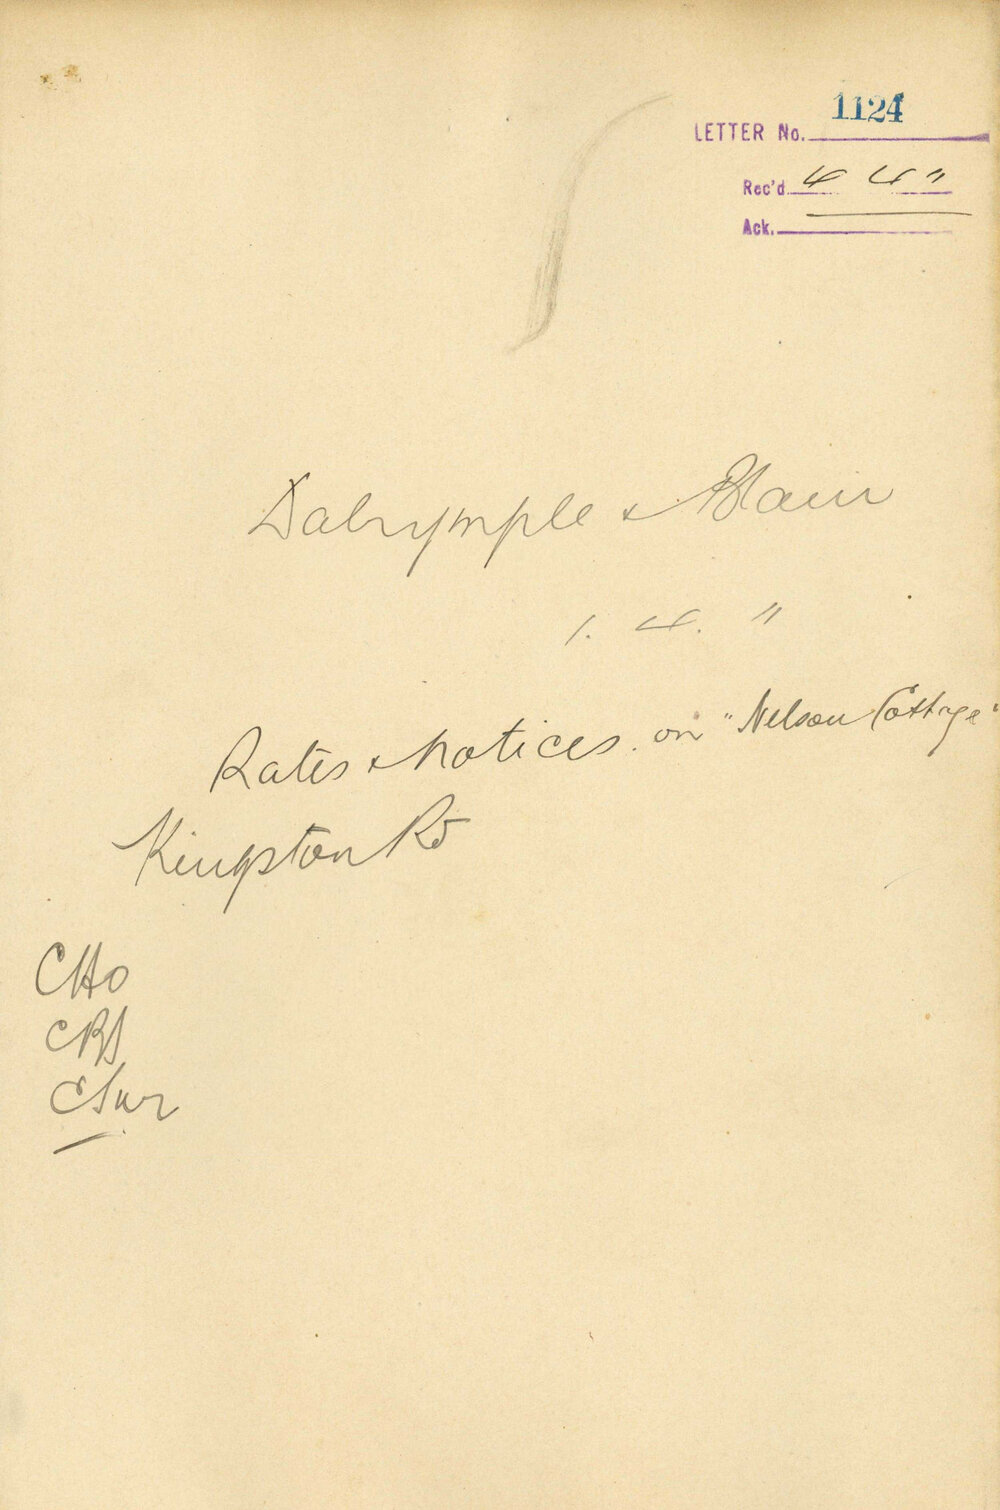 1124
LETTER No.
Rec'd 4 4 "
Ack.
Dalrymple & Blair
1. 4. "
Rates & Notices. on "Nelson Cottage"
Kingston Rd
CHO
CBS
CSur